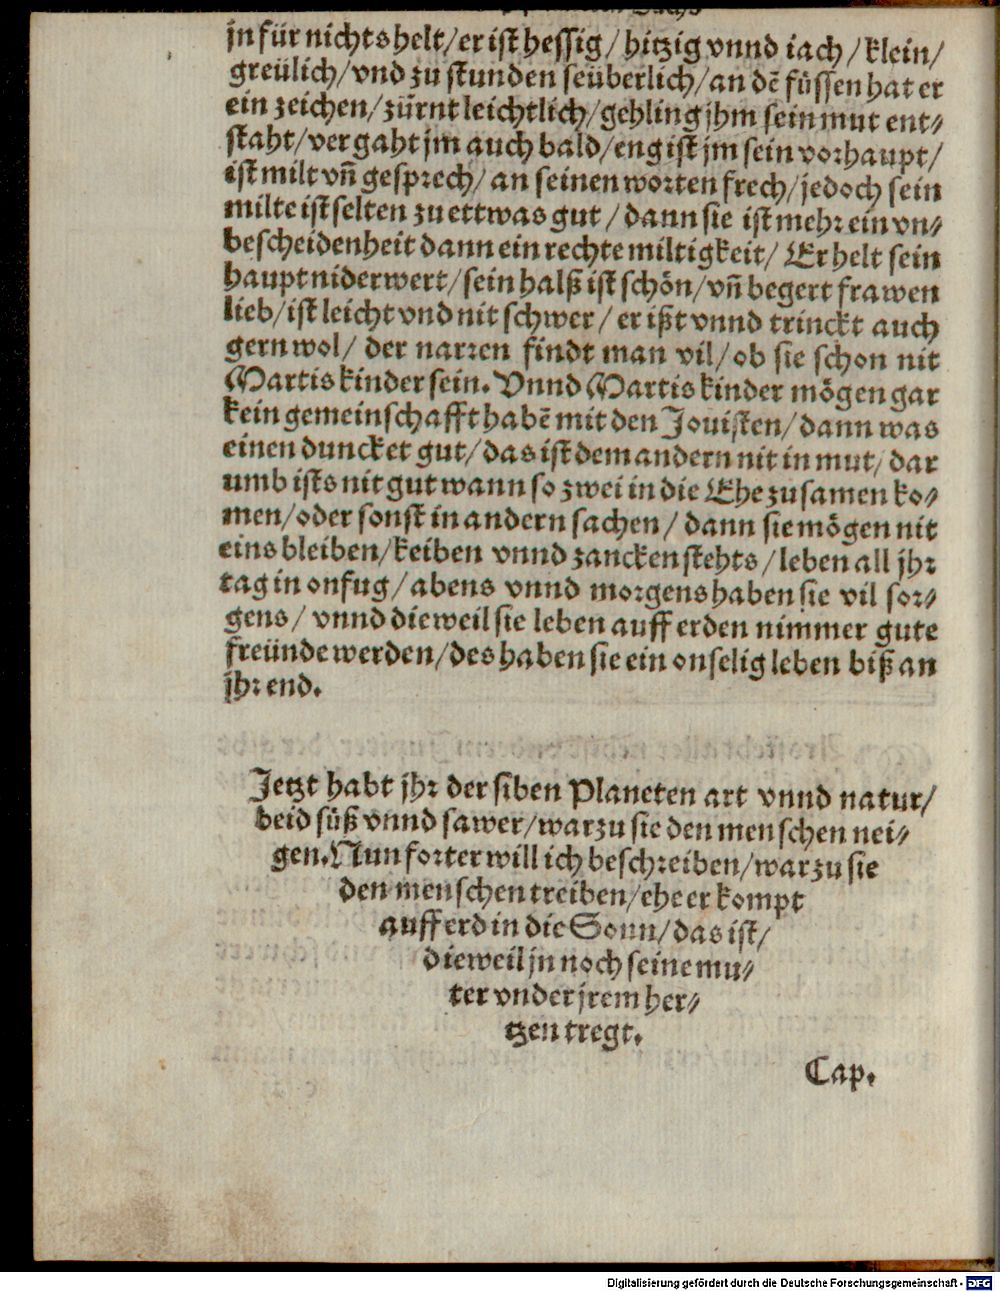 jn für nichts helt/er ist hessig/hitzig vnnd iach/klein/
greülich/vnd zu stunden seüberlich/an dē füssen hat er
ein zeichen/zürnt leichtlich/gehling jhm sein mut ent⸗
staht/vergaht jm auch bald/eng ist jm sein vorhaupt/
ist milt vñ gesprech/an seinen worten frech/jedoch sein
milte ist selten zu ettwas gut/dann sie ist mehr ein vn⸗
bescheidenheit dann ein rechte miltigkeit/Er helt sein
haupt niderwert/sein halß ist schön/vñ begert frawen
lieb/ist leicht vnd nit schwer/er ißt vnnd trinckt auch
gern wol/der narren findt man vil/ob sie schon nit
Martis kinder sein. Vnnd Martis kinder mögen gar
kein gemeinschafft habē mit den Jouisten/dann was
einen duncket gut/das ist dem andern nit in mut/dar
umb ists nit gut wann so zwei in die Ehe zusamen ko⸗
men/oder sonst in andern sachen/dann sie mögen nit
eins bleiben/keiben vnnd zancken stehts/leben all jhr
tag in onfug/abens vnnd morgens haben sie vil sor⸗
gens/vnnd dieweil sie leben auff erden nimmer gute
freünde werden/des haben sie ein onselig leben biß an
jhr end.
Jetzt habt jhr der siben Planeten art vnnd natur/
beid süß vnnd sawer/warzu sie den menschen nei⸗
gen. Nun forter will ich beschreiben/warzu sie
den menschen treiben/ehe er kompt
auff erd in die Sonn/das ist/
dieweil jn noch seine mu⸗
ter vnder jrem her⸗
tzen tregt.
Cap.
Digitalisierung gefördert durch die Deutsche Forschungsgemeinschaft - DFG